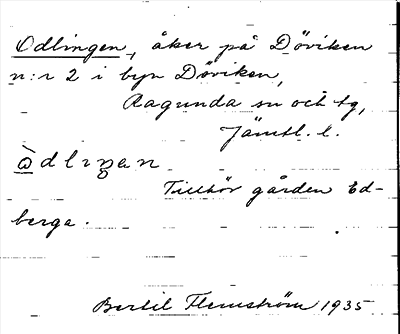 Odlingen, åker på Döviken
n:r 2 i byn Döviken,
Ragunda sn och tg,
Jämtl. l.
òdlıŋan
Tillhör gården Ed-
berga.
Bertil Flemström 1935